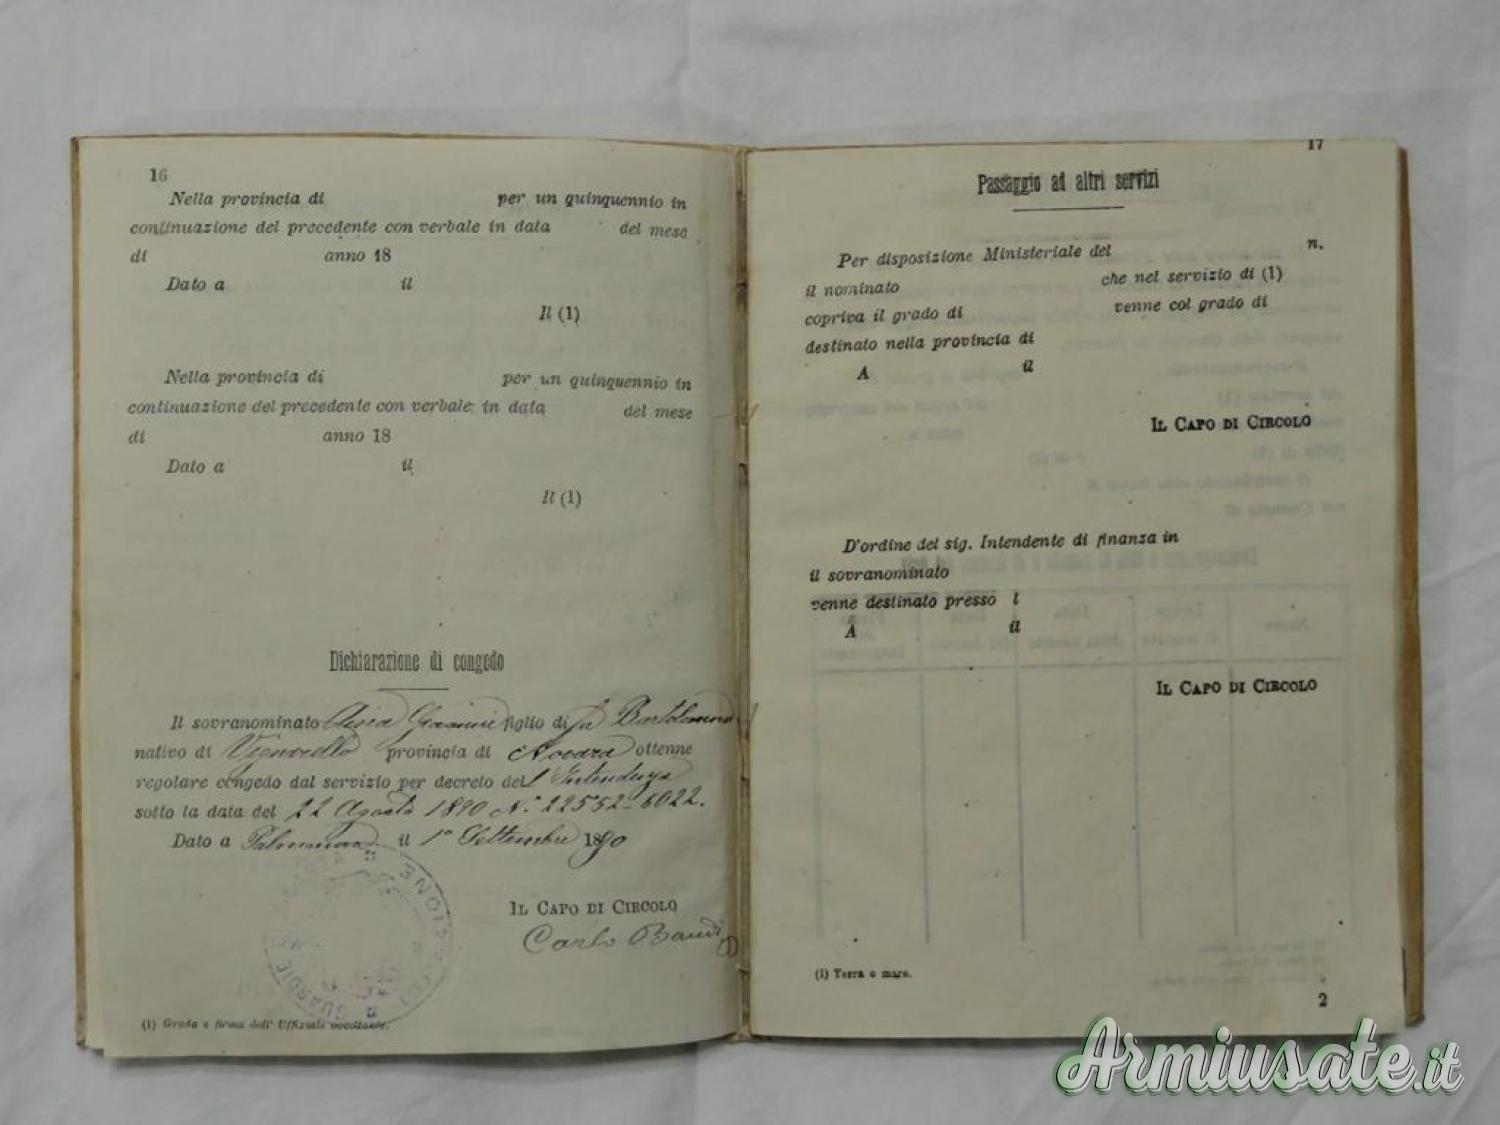 16
Nella provincia di per un quinquennio in
continuazione del precedente con verbale in data del mese
di anno 18
Dato a il
Il (1)
Nella provincia di per un quinquennio in
continuazione del precedente con verbale in data del mese
di anno 18
Dato a il
Il (1)
Dichiarazione di congedo
Il sovranominato figlio di fu Bartolomeo
nativo di provincia di Novara ottenne
regolare congedo dal servizio per decreto del Intendenza
sotto la data del 22 Agosto 1890 N.° 22552-6022.
Dato a Palmanova il 1° Settembre 1890
IL CAPO DI CIRCOLO
Carlo
GUARDIE
(1) Grado e firma dell' Uffiziale accettante.
17
Passaggio ad altri servizi
Per disposizione Ministeriale del n.
il nominato che nel servizio di (1)
copriva il grado di venne col grado di
destinato nella provincia di
A il
IL CAPO DI CIRCOLO
D'ordine del sig. Intendente di finanza in
il sovranominato
venne destinato presso l
A il
IL CAPO DI CIRCOLO
(1) Terra o mare.
2
Armiusate.it